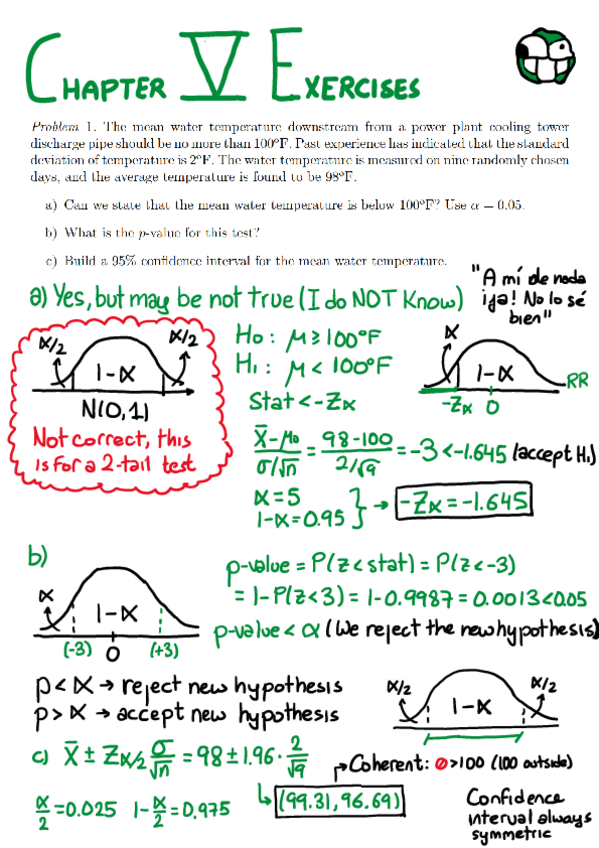 CHAPTER V EXERCISES
Problem 1. The mean water temperature downstream from a power plant cooling tower
discharge pipe should be no more than 100ºF. Past experience has indicated that the standard
deviation of temperature is 2ºF. The water temperature is measured on nine randomly chosen
days, and the average temperature is found to be 98ºF.
a) Can we state that the mean water temperature is below 100ºF? Use α = 0.05.
b) What is the p-value for this test?
c) Build a 95% confidence interval for the mean water temperature.
"A mí de nada
¡ja! No lo sé
bien"
a) Yes, but may be not true (I do NOT know)
α/2 α/2
1-α
N(0,1)
Not correct, this
is for a 2-tail test
Ho: μ≥100ºF
H1: μ<100ºF
Stat < -Zα
α
1-α
RR
-Zα 0
X̄-μ0 / σ/√n = 98-100 / 2/√9 = -3 < -1.645 (accept H1)
α=5
1-α=0.95 } → -Zα = -1.645
b)
α
1-α
(-3) 0 (+3)
p-value = P(z<stat) = P(z<-3)
= 1-P(z<3) = 1-0.9987 = 0.0013<0.05
p-value < α (We reject the new hypothesis)
p < α → reject new hypothesis
p > α → accept new hypothesis
α/2 α/2
1-α
c) X̄ ± Zα/2 σ/√n = 98 ± 1.96 · 2/√9
→ Coherent: ∅>100 (100 outside)
α/2 = 0.025 1-α/2 = 0.975
↳ (99.31, 96.69)
Confidence
interval always
symmetric